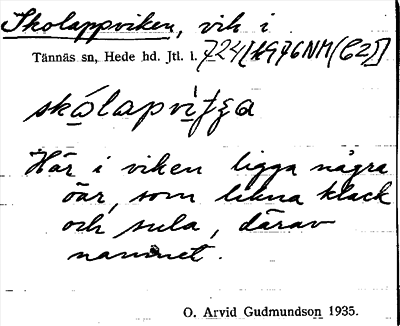 Skolappviken, vik i
Tännäs sn, Hede hd. Jtl. l. 724 [1976NM(C2)]
skólapvi
Här i viken ligga några
öar, som likna klack
och sula, därav
namnet.
O. Arvid Gudmundson 1935.